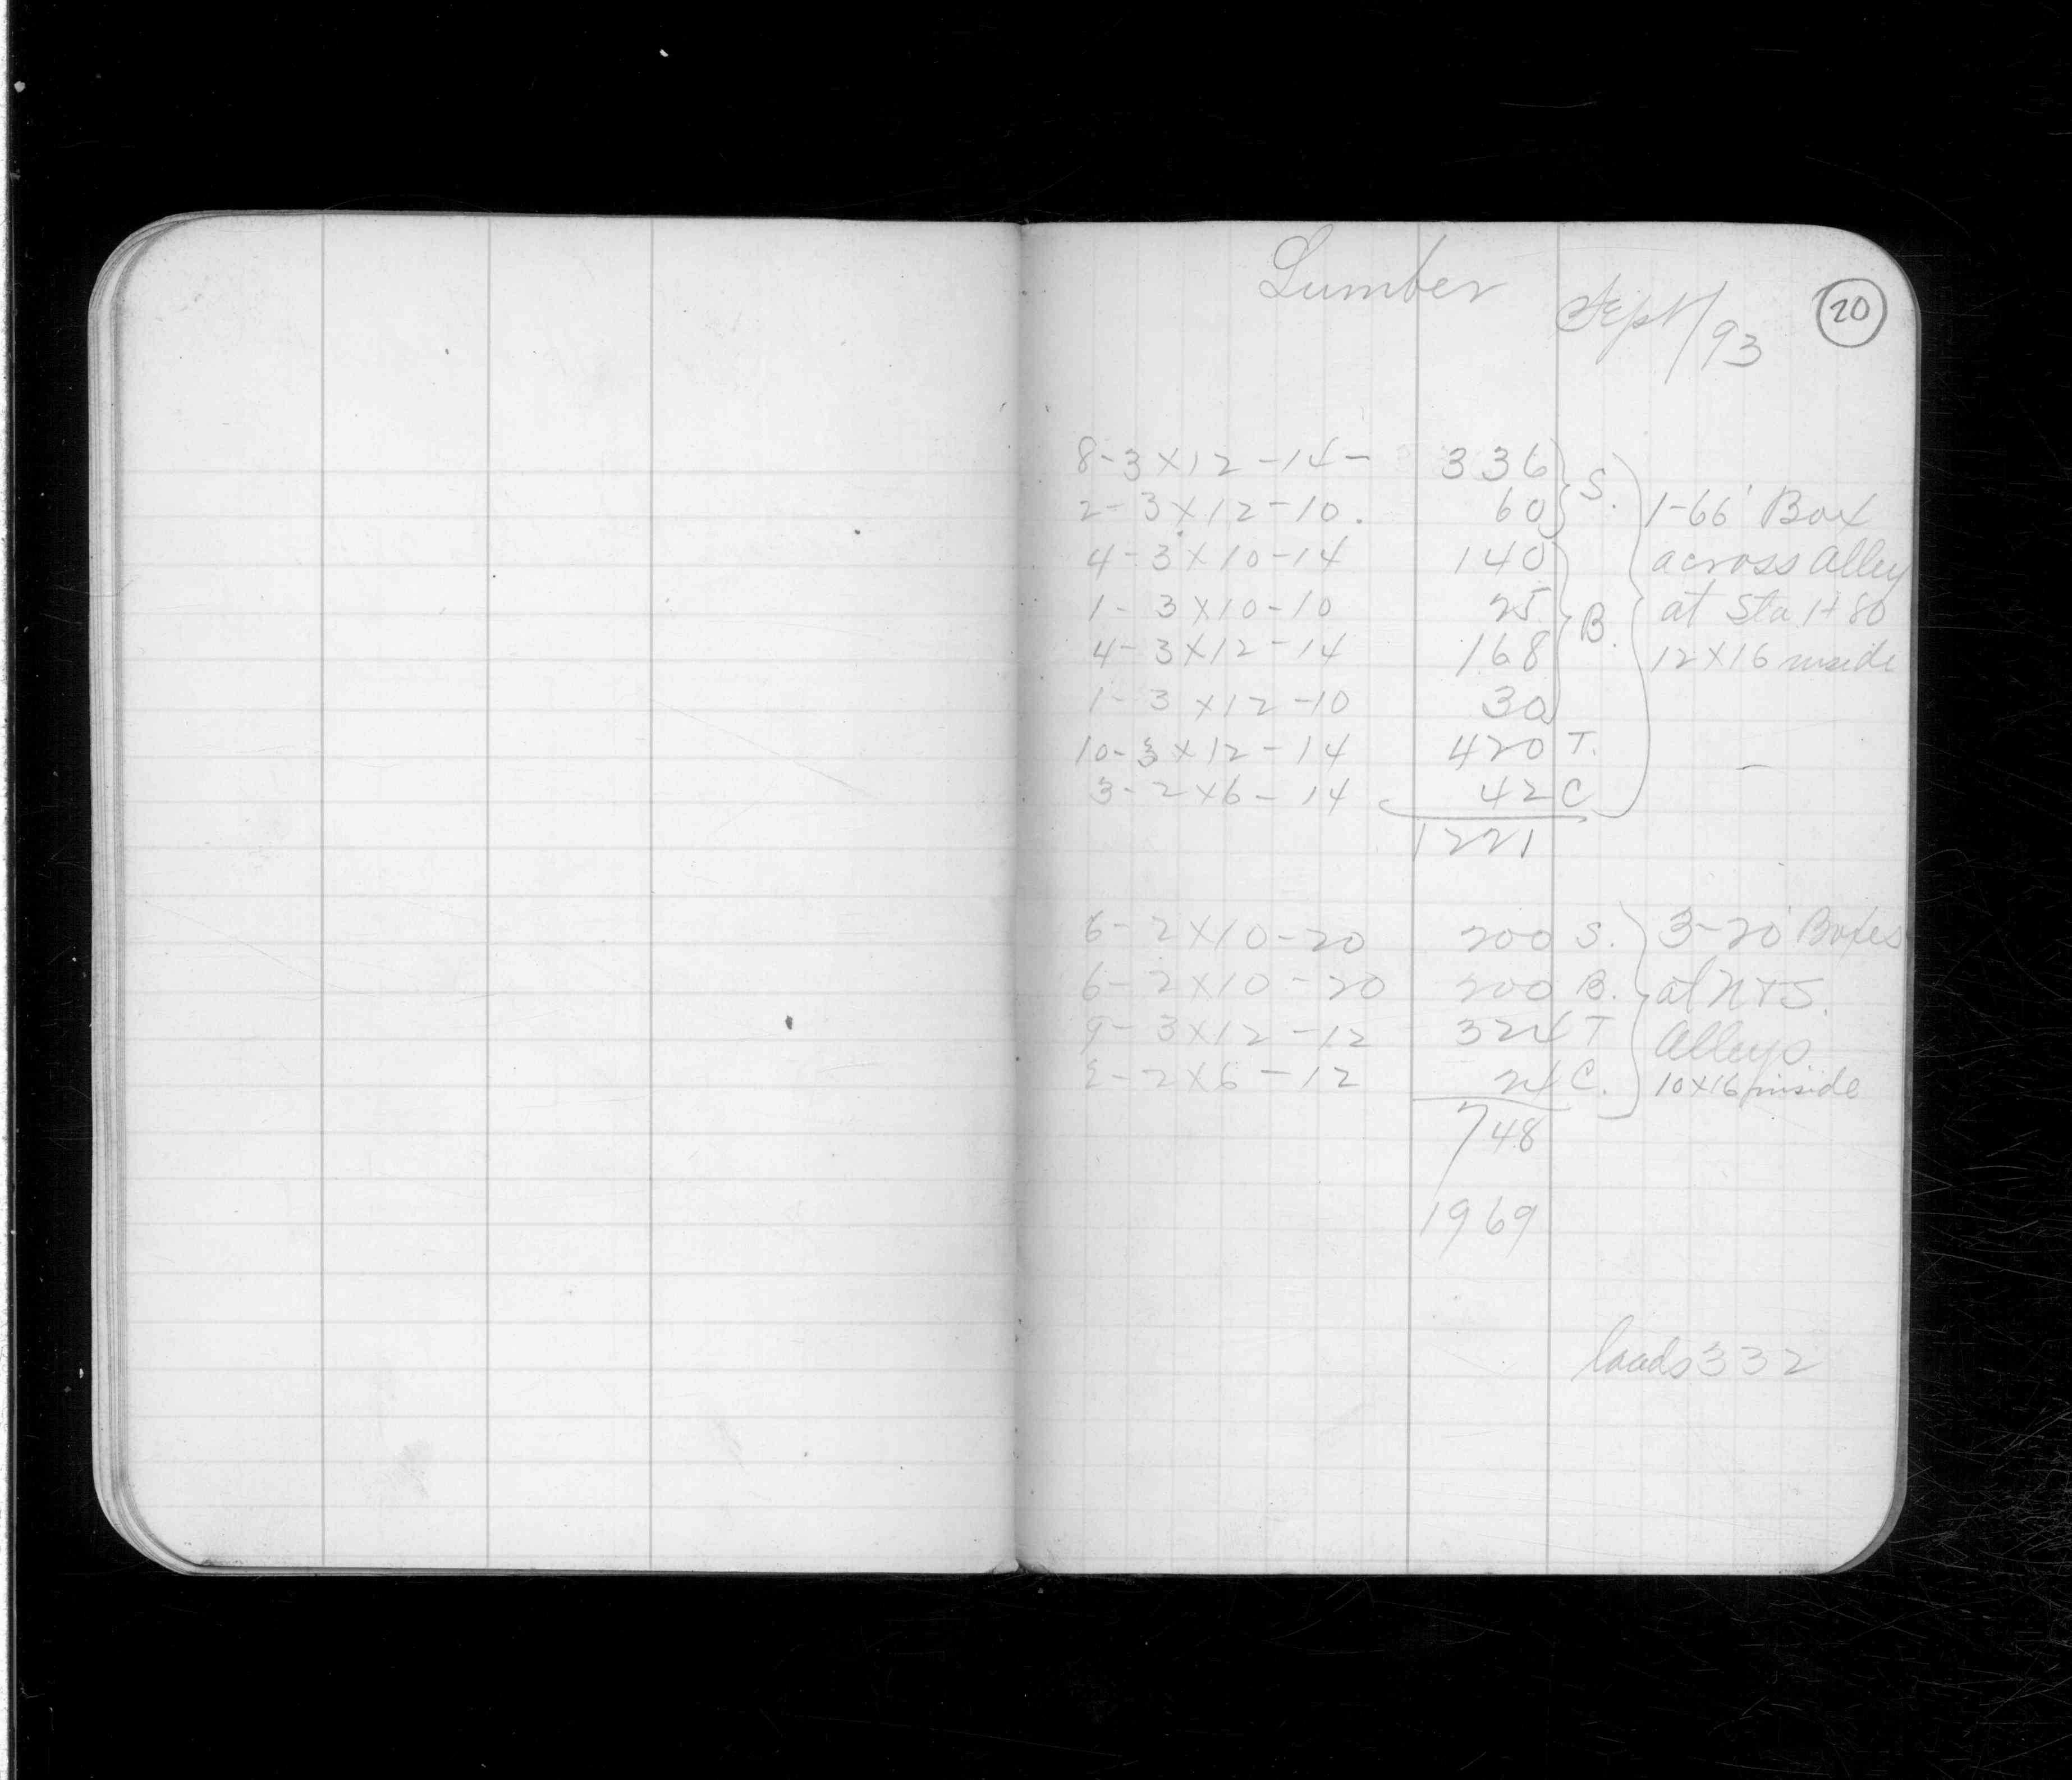 Lumber
Sept/93
20
8-3×12-14- 336 S.
2-3×12-10. 60
4-3×10-14 140
1-3×10-10 25 B.
4-3×12-14 168
1-3×12-10 30
10-3×12-14 420 T.
3-2×6-14 42 C
1221
1-66' Box
across Alley
at Sta 1+80
12×16 inside
6-2×10-20 200 S.
6-2×10-20 200 B.
9-3×12-12 324 T
2-2×6-12 24 C.
748
3-20' Boxes
at N+S.
Alleys
10×16 inside
1969
loads 332